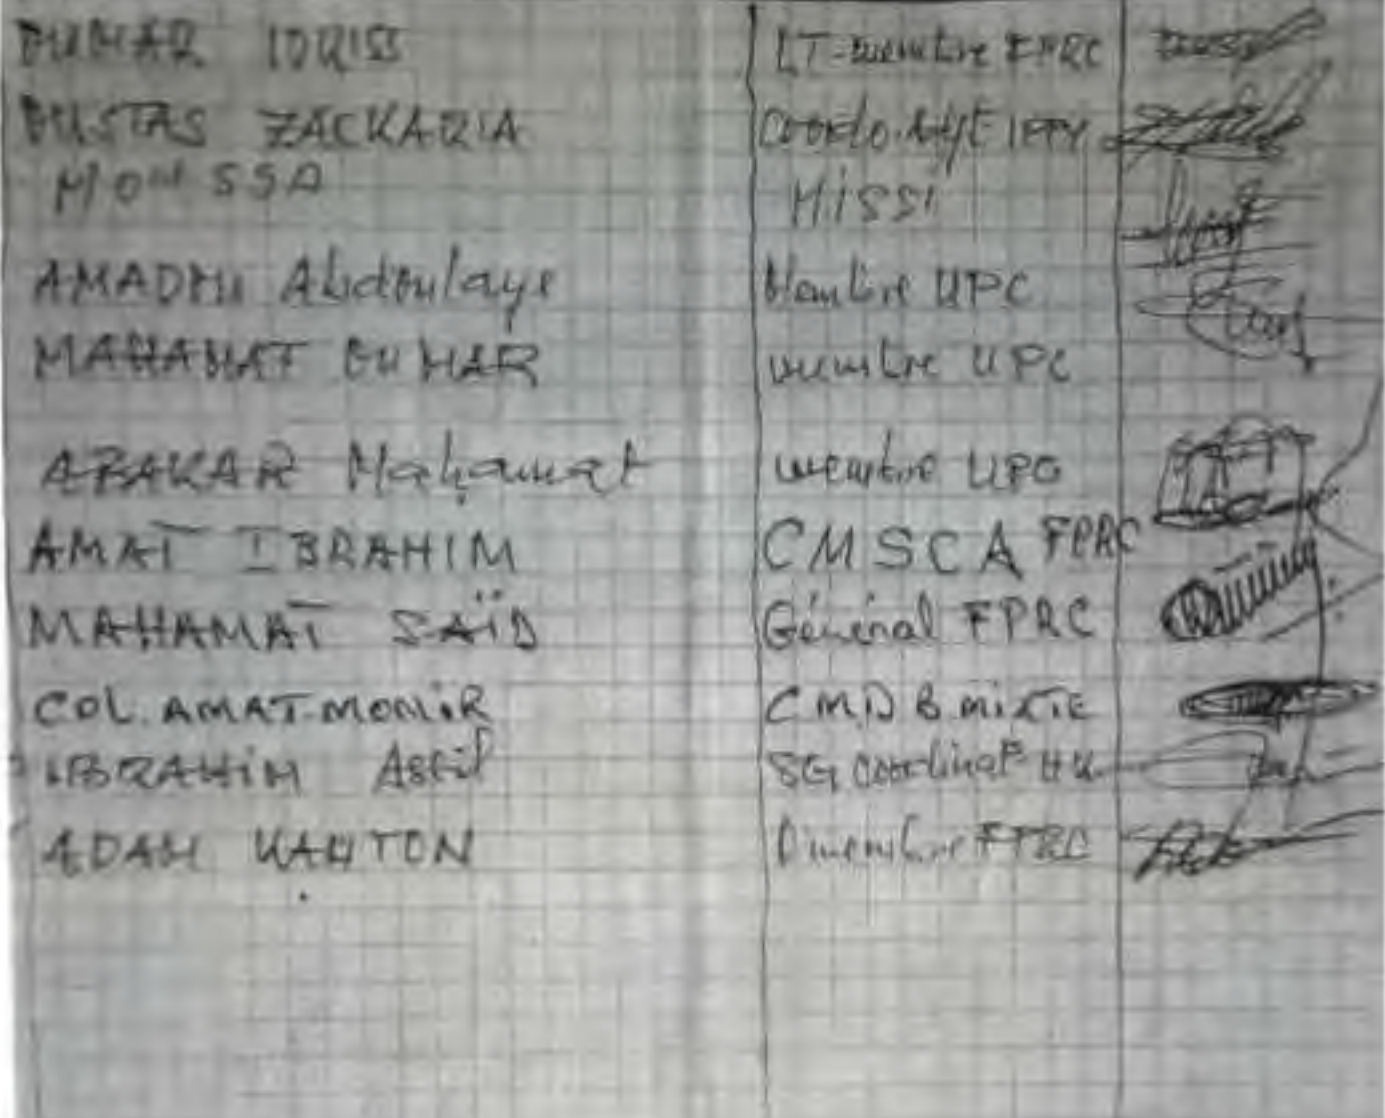 OUMAR IDRISS LT-membre FPRC
OUSTAS ZACKARIA Coordo. IPPY
MOUSSA HISSI
AMADOU Abdoulaye Membre UPC
MAHAMAT OUMAR membre UPC
ABAKAR Mahamat membre UPC
AMAT IBRAHIM CMSCA FPRC
MAHAMAT SAÏD Général FPRC
COL. AMAT-MOMIR CMD B. MIXTE
IBRAHIM SG
ADAM KANTON FPRC